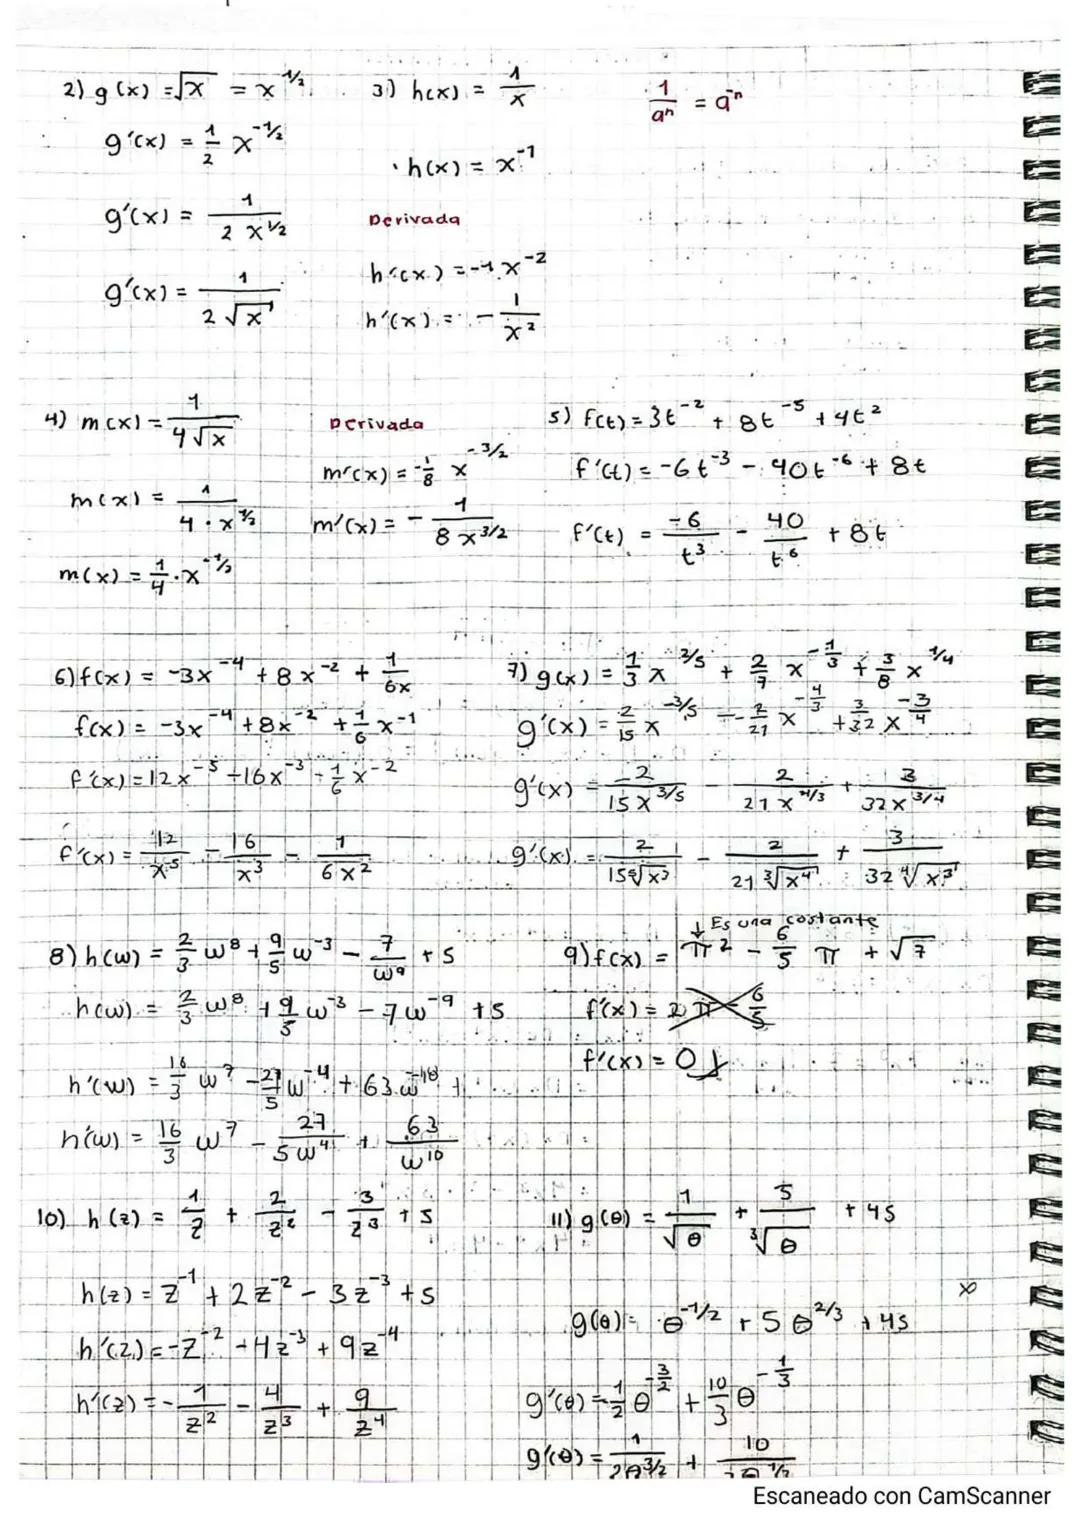 2) g(x) = √x = x^{1/2}
g'(x) = 1/2 x^{-1/2}
g'(x) = 1/(2 x^{1/2})
g'(x) = 1/(2 √x)
3) h(x) = 1/x
h(x) = x^{-1}
Derivada
h'(x) = -1 x^{-2}
h'(x) = - 1/x^2
1/a^n = a^{-n}
4) m(x) = 1/(4 √x)
m(x) = 1/(4 · x^{1/2})
m(x) = 1/4 · x^{-1/2}
Derivada
m'(x) = -1/8 x^{-3/2}
m'(x) = - 1/(8 x^{3/2})
5) f(t) = 3t^{-2} + 8t^{-5} + 4t^2
f'(t) = -6t^{-3} - 40t^{-6} + 8t
f'(t) = -6/t^3 - 40/t^6 + 8t
6) f(x) = -3x^{-4} + 8x^{-2} + 1/(6x)
f(x) = -3x^{-4} + 8x^{-2} + 1/6 x^{-1}
f'(x) = 12x^{-5} - 16x^{-3} - 1/6 x^{-2}
f'(x) = 12/x^5 - 16/x^3 - 1/(6x^2)
7) g(x) = 1/3 x^{2/5} + 2/7 x^{-1/3} + 3/8 x^{1/4}
g'(x) = 2/15 x^{-3/5} - 2/21 x^{-4/3} + 3/32 x^{-3/4}
g'(x) = 2/(15 x^{3/5}) - 2/(21 x^{4/3}) + 3/(32 x^{3/4})
g'(x) = 2/(15 ⁵√x^3) - 2/(21 ³√x^4) + 3/(32 ⁴√x^3)
8) h(w) = 2/3 w^8 + 9/5 w^{-3} - 7/w^9 + 5
h(w) = 2/3 w^8 + 9/5 w^{-3} - 7w^{-9} + 5
h'(w) = 16/3 w^7 - 27/5 w^{-4} + 63 w^{-10} +
h'(w) = 16/3 w^7 - 27/(5w^4) + 63/w^{10}
↓ Es una costante
9) f(x) = π^2 - 6/5 π + √7
f'(x) = 2π - 6/5
f'(x) = 0
10) h(z) = 1/z + 2/z^2 - 3/z^3 + 5
h(z) = z^{-1} + 2z^{-2} - 3z^{-3} + 5
h'(z) = -z^{-2} - 4z^{-3} + 9z^{-4}
h'(z) = - 1/z^2 - 4/z^3 + 9/z^4
11) g(θ) = 1/√θ + 5/³√θ + 45
g(θ) = θ^{-1/2} + 5θ^{2/3} + 45
g'(θ) = -1/2 θ^{-3/2} + 10/3 θ^{-1/3}
g'(θ) = 1/(2θ^{3/2}) + 10/
Escaneado con CamScanner